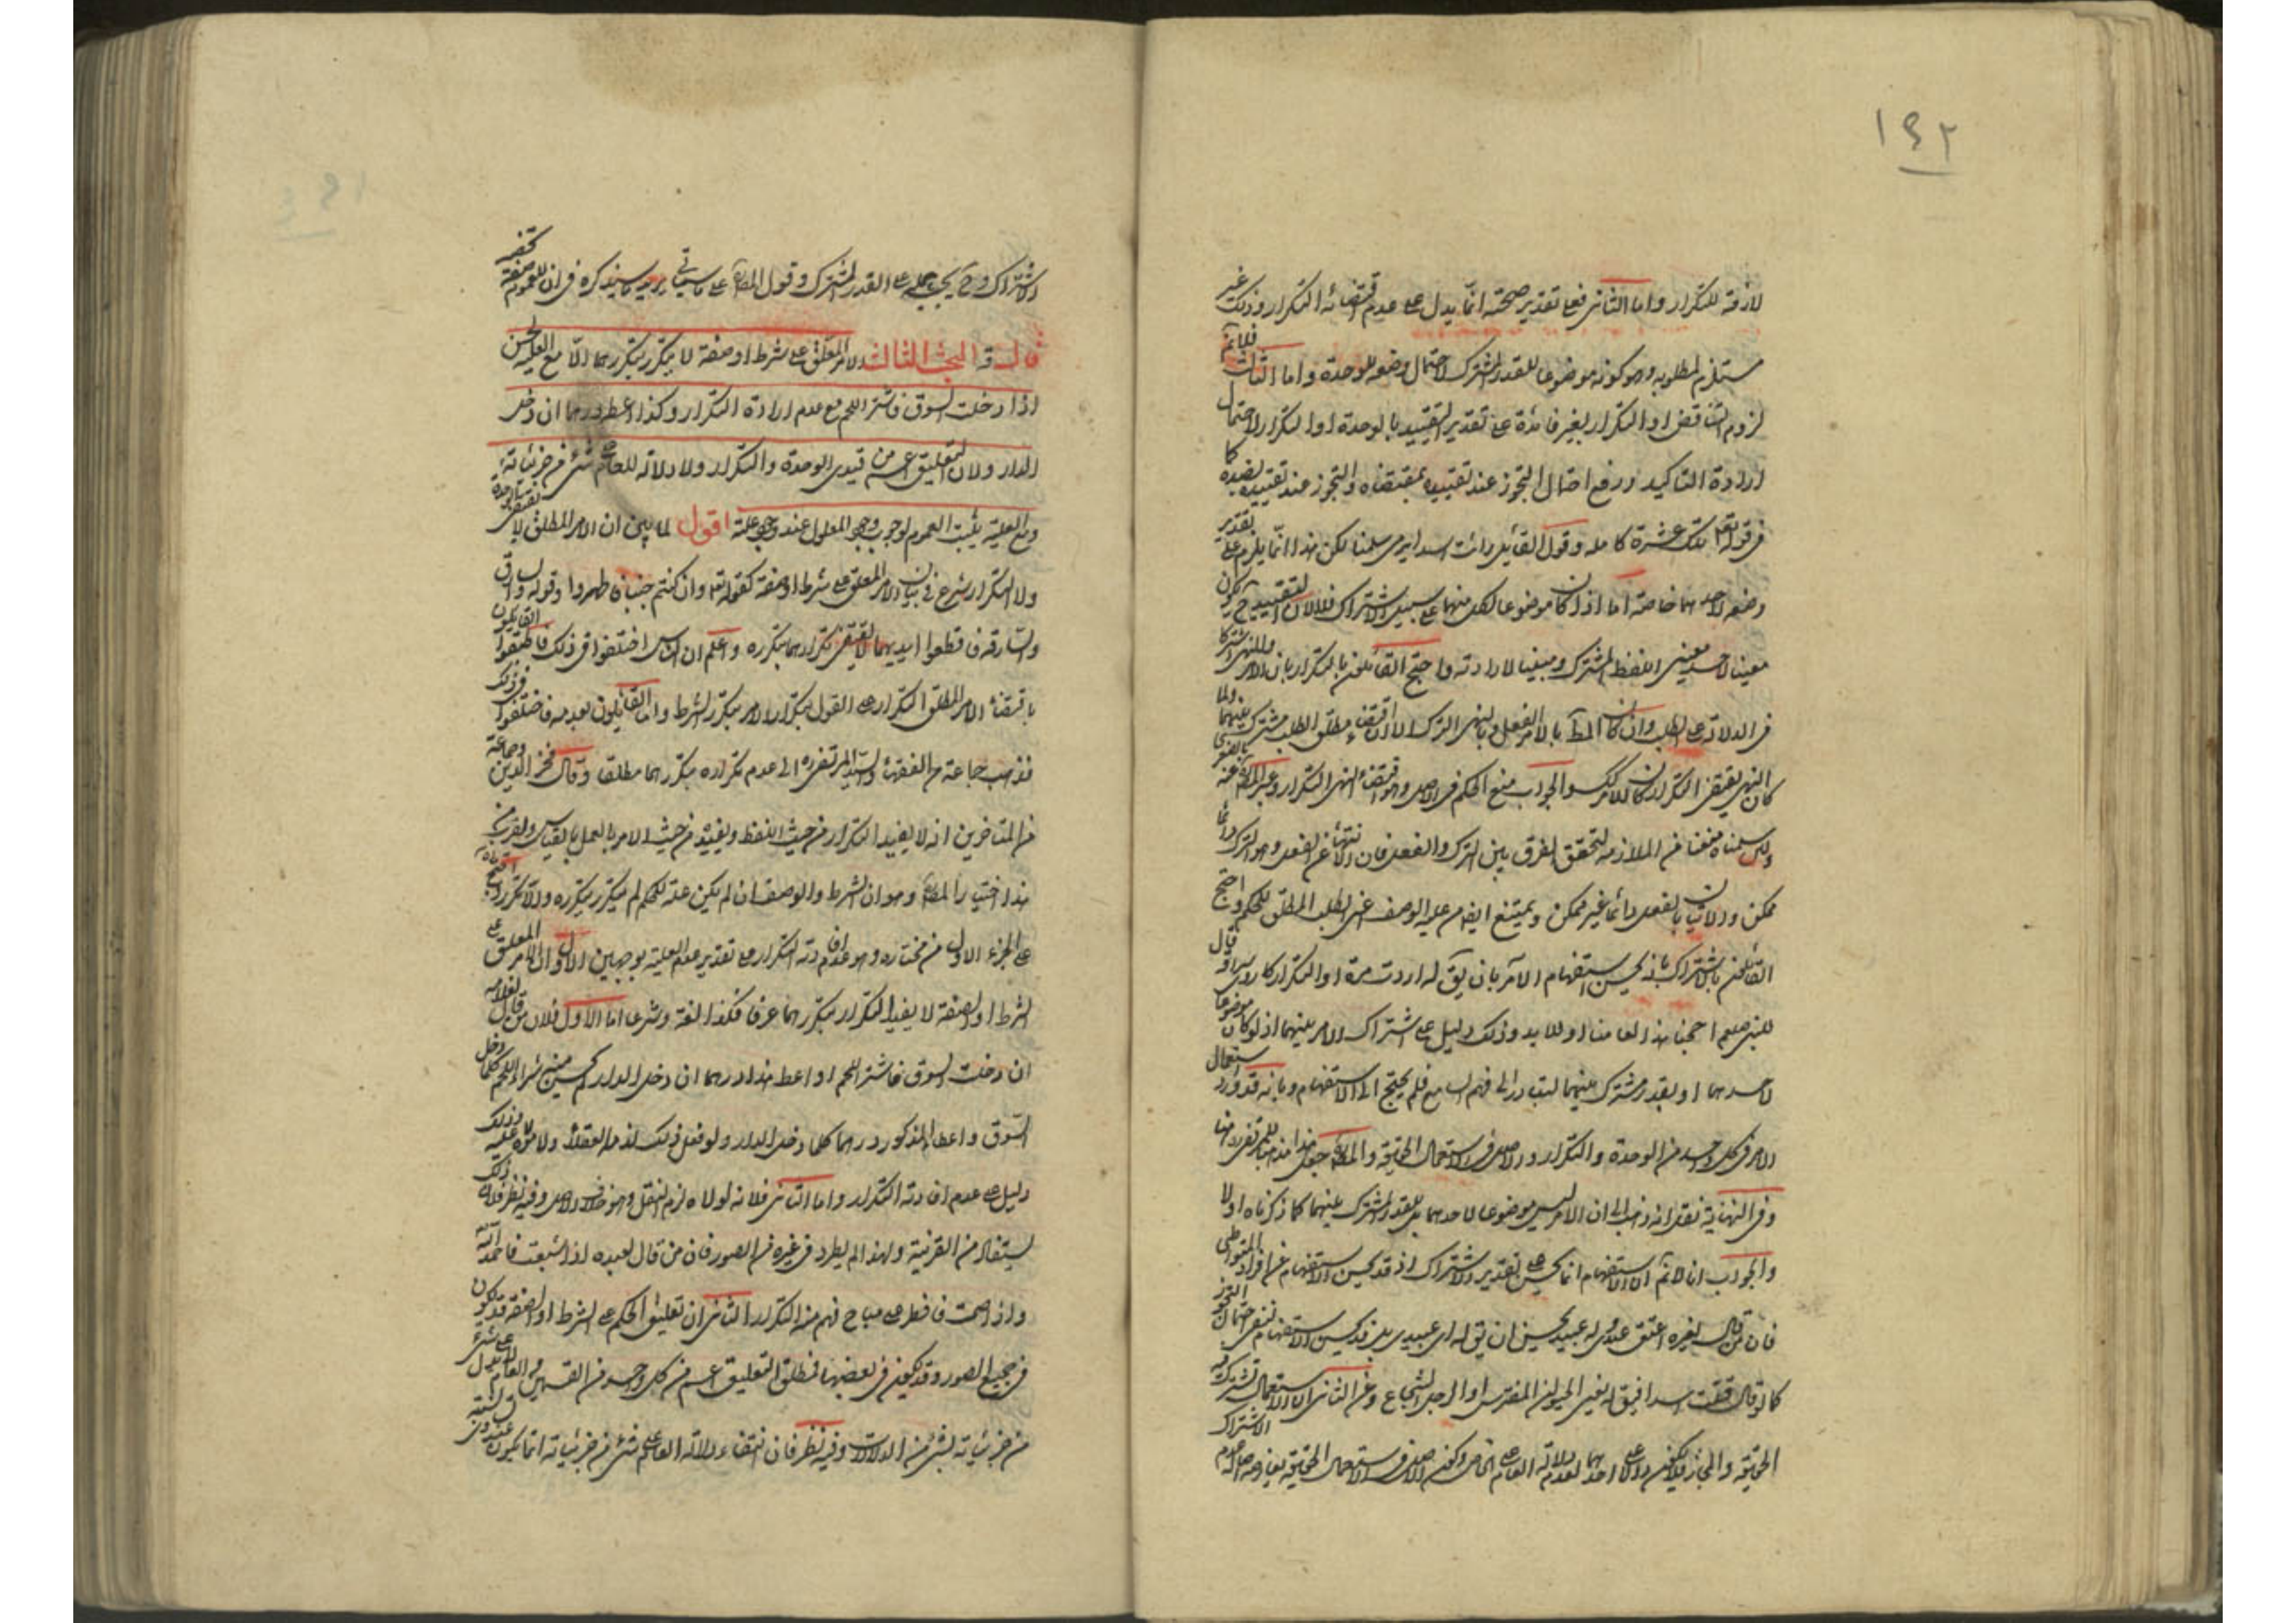 ١٤٢
لارقة للتكرار واما الثانى فعلى تقدير صحته انما يدل على عدم اقتضائه التكرار وذلك غير
مستلزم لمطلوبه وهو كونه موضوعا للقدر المشترك لاحتمال وضعه للوحدة واما الثالث فلانم
لزوم التناقض او التكرار بغير فائدة على تقدير التقييد بالوحدة او التكرار لاحتمال
ارادة التاكيد ورفع احتمال التجوز عند تقييده بمقتضاه والتجوز عند تقييده بضده كما
فى قوله تعالى تلك عشرة كاملة وقول القائل رأيت اسدا يرمى سلمنا لكن هذا انما يلزم على تقدير
وضعه لاحدهما خاصة اما اذا كان موضوعا لكل منهما على سبيل الاشتراك فلا لان التقييد ح يكون
معينا لاحد معينى اللفظ المشترك ومبينا لارادته واحتج القائلون بالتكرار بان الامر والنهى اشتركا
فى الدلالة على الطلب وان كان المط بالامر الفعل وبالنهى الترك الا ان اقتضاء مطلق الطلب مشترك بينهما ولما
كان النهى يقتضى التكرار كان الامر كذلك والجواب منع الحكم فى الاصل وهو اقتضاء النهى التكرار
ولئن سلمناه منعنا الملازمة لتحقق الفرق بين الترك والفعل فان الانتهاء عن الفعل وهو الترك دائما
ممكن والاتيان بالفعل دائما غير ممكن ويمتنع ايضا علية الوصف اعنى الطلب المطلق للحكم واحتج
القائلون بالاشتراك بانه يحسن استفهام الآمر بان يق له اردت مرة او التكرار كما روى سراقة قال
للنبى صلعم احجنا هذا لعامنا او للابد وذلك دليل على اشتراك الامر بينهما اذ لو كان موضوعا
لاحدهما او لقدر مشترك بينهما لتبادر الى فهم السامع فلم يحتج الى الاستفهام وبانه قد ورد استعمال
الامر فى كل واحد من الوحدة والتكرار والاصل فى الاستعمال الحقيقة والمص جعل هذا مذهبا للمرتضى رضى
وفى النهاية نقل انه ذهب الى ان الامر ليس موضوعا لاحدهما بل للقدر المشترك بينهما كما ذكرناه اولا
والجواب انا لانم ان الاستفهام انما يحسن على تقدير الاشتراك اذ قد يحسن الاستفهام عن افراد المتواطى
فان من قال لغيره اعتق عبدى وله عبيد يحسن ان يق له اى عبيدى بل قد يحسن الاستفهام لنفى احتمال التجوز
كما لو قال قتلت اسدا فيق له يعنى الحيوان المفترس او الرجل الشجاع وعن الثانى ان الاستعمال
الحقيقة والمجاز فلا يكون دالا على احدهما لعدم دلالة العام على الخاص وكون الاصل فى الاستعمال الحقيقة
الاشتراك وح يجب حمله على القدر المشترك وقول المص على ما سياتى يريد ما سيذكره فى ان للعموم صيغة تخصه
قال قه البحث الثالث الامر المعلق على شرط او صفة لا يتكرر بتكررهما الا مع العلية لحسن
اذا دخلت السوق فاشتر اللحم مع عدم ارادة التكرار وكذا اعط درهما ان دخل
الدار ولان التعليق اعم من قيدى الوحدة والتكرار ولا دلالة للعام على شئ من جزئياته
ومع العلية يثبت العموم لوجوب وجود المعلول عند وجود علته اقول لما بين ان الامر المطلق لا يقتضى الوحدة
ولا التكرار شرع فى بيان الامر المعلق على شرط او صفة كقوله تعالى وان كنتم جنبا فاطهروا وقوله والسارق
والسارقة فاقطعوا ايديهما لا يقتضى تكرارهما بتكرره واعلم ان الناس اختلفوا فى ذلك فاطبق القائلون
باقتضاء الامر المطلق التكرار على القول بتكرار الامر بتكرر الشرط واما القائلون بعدمه فاختلفوا فى ذلك
فذهب جماعة من الفقهاء والسيد المرتضى ره الى عدم تكراره بتكررهما مطلقا وقال فخر الدين وجماعة
من المتاخرين انه لا يفيد التكرار من حيث اللفظ ويفيده من حيث الامر بالعمل بالقياس ويقرب من
هذا اختيار المص وهو ان الشرط والوصف ان لم يكن علة للحكم لم يتكرر بتكرره والا تكرر واحتج
على الجزء الاول من مختاره وهو عدم افادته التكرار على تقدير عدم العلية بوجهين الاول ان الامر المعلق على
الشرط او الصفة لا يفيد التكرار بتكررهما عرفا فكذا لغة وشرعا اما الاول فلان من قال لغلامه
ان دخلت السوق فاشتر اللحم او اعط هذا درهما ان دخل الدار لم يحسن منه شراء اللحم كلما دخل
السوق واعطاء المذكور درهما كلما دخل الدار ولو فعل ذلك لذمه العقلاء ولاموه عليه وذلك
دليل على عدم افادته التكرار واما الثانى فلانه لولاه لزم النقل وهو خلاف الاصل وفيه نظر فان ذلك
يستفاد من القرينة ولهذا لم يطرد فى غيره من الصور فان من قال لعبده اذا شبعت فاحمد الله
واذا صمت فافطر على مباح فهم منه التكرار الثانى ان تعليق الحكم على الشرط او الصفة قد يكون
فى جميع الصور وقد يكون فى بعضها فمطلق التعليق اعم من كل واحد من القسمين والعام لا يدل على شئ
من جزئياته بشئ من الدلالات وفيه نظر فان انتفاء دلالة العام على شئ من جزئياته انما يكون